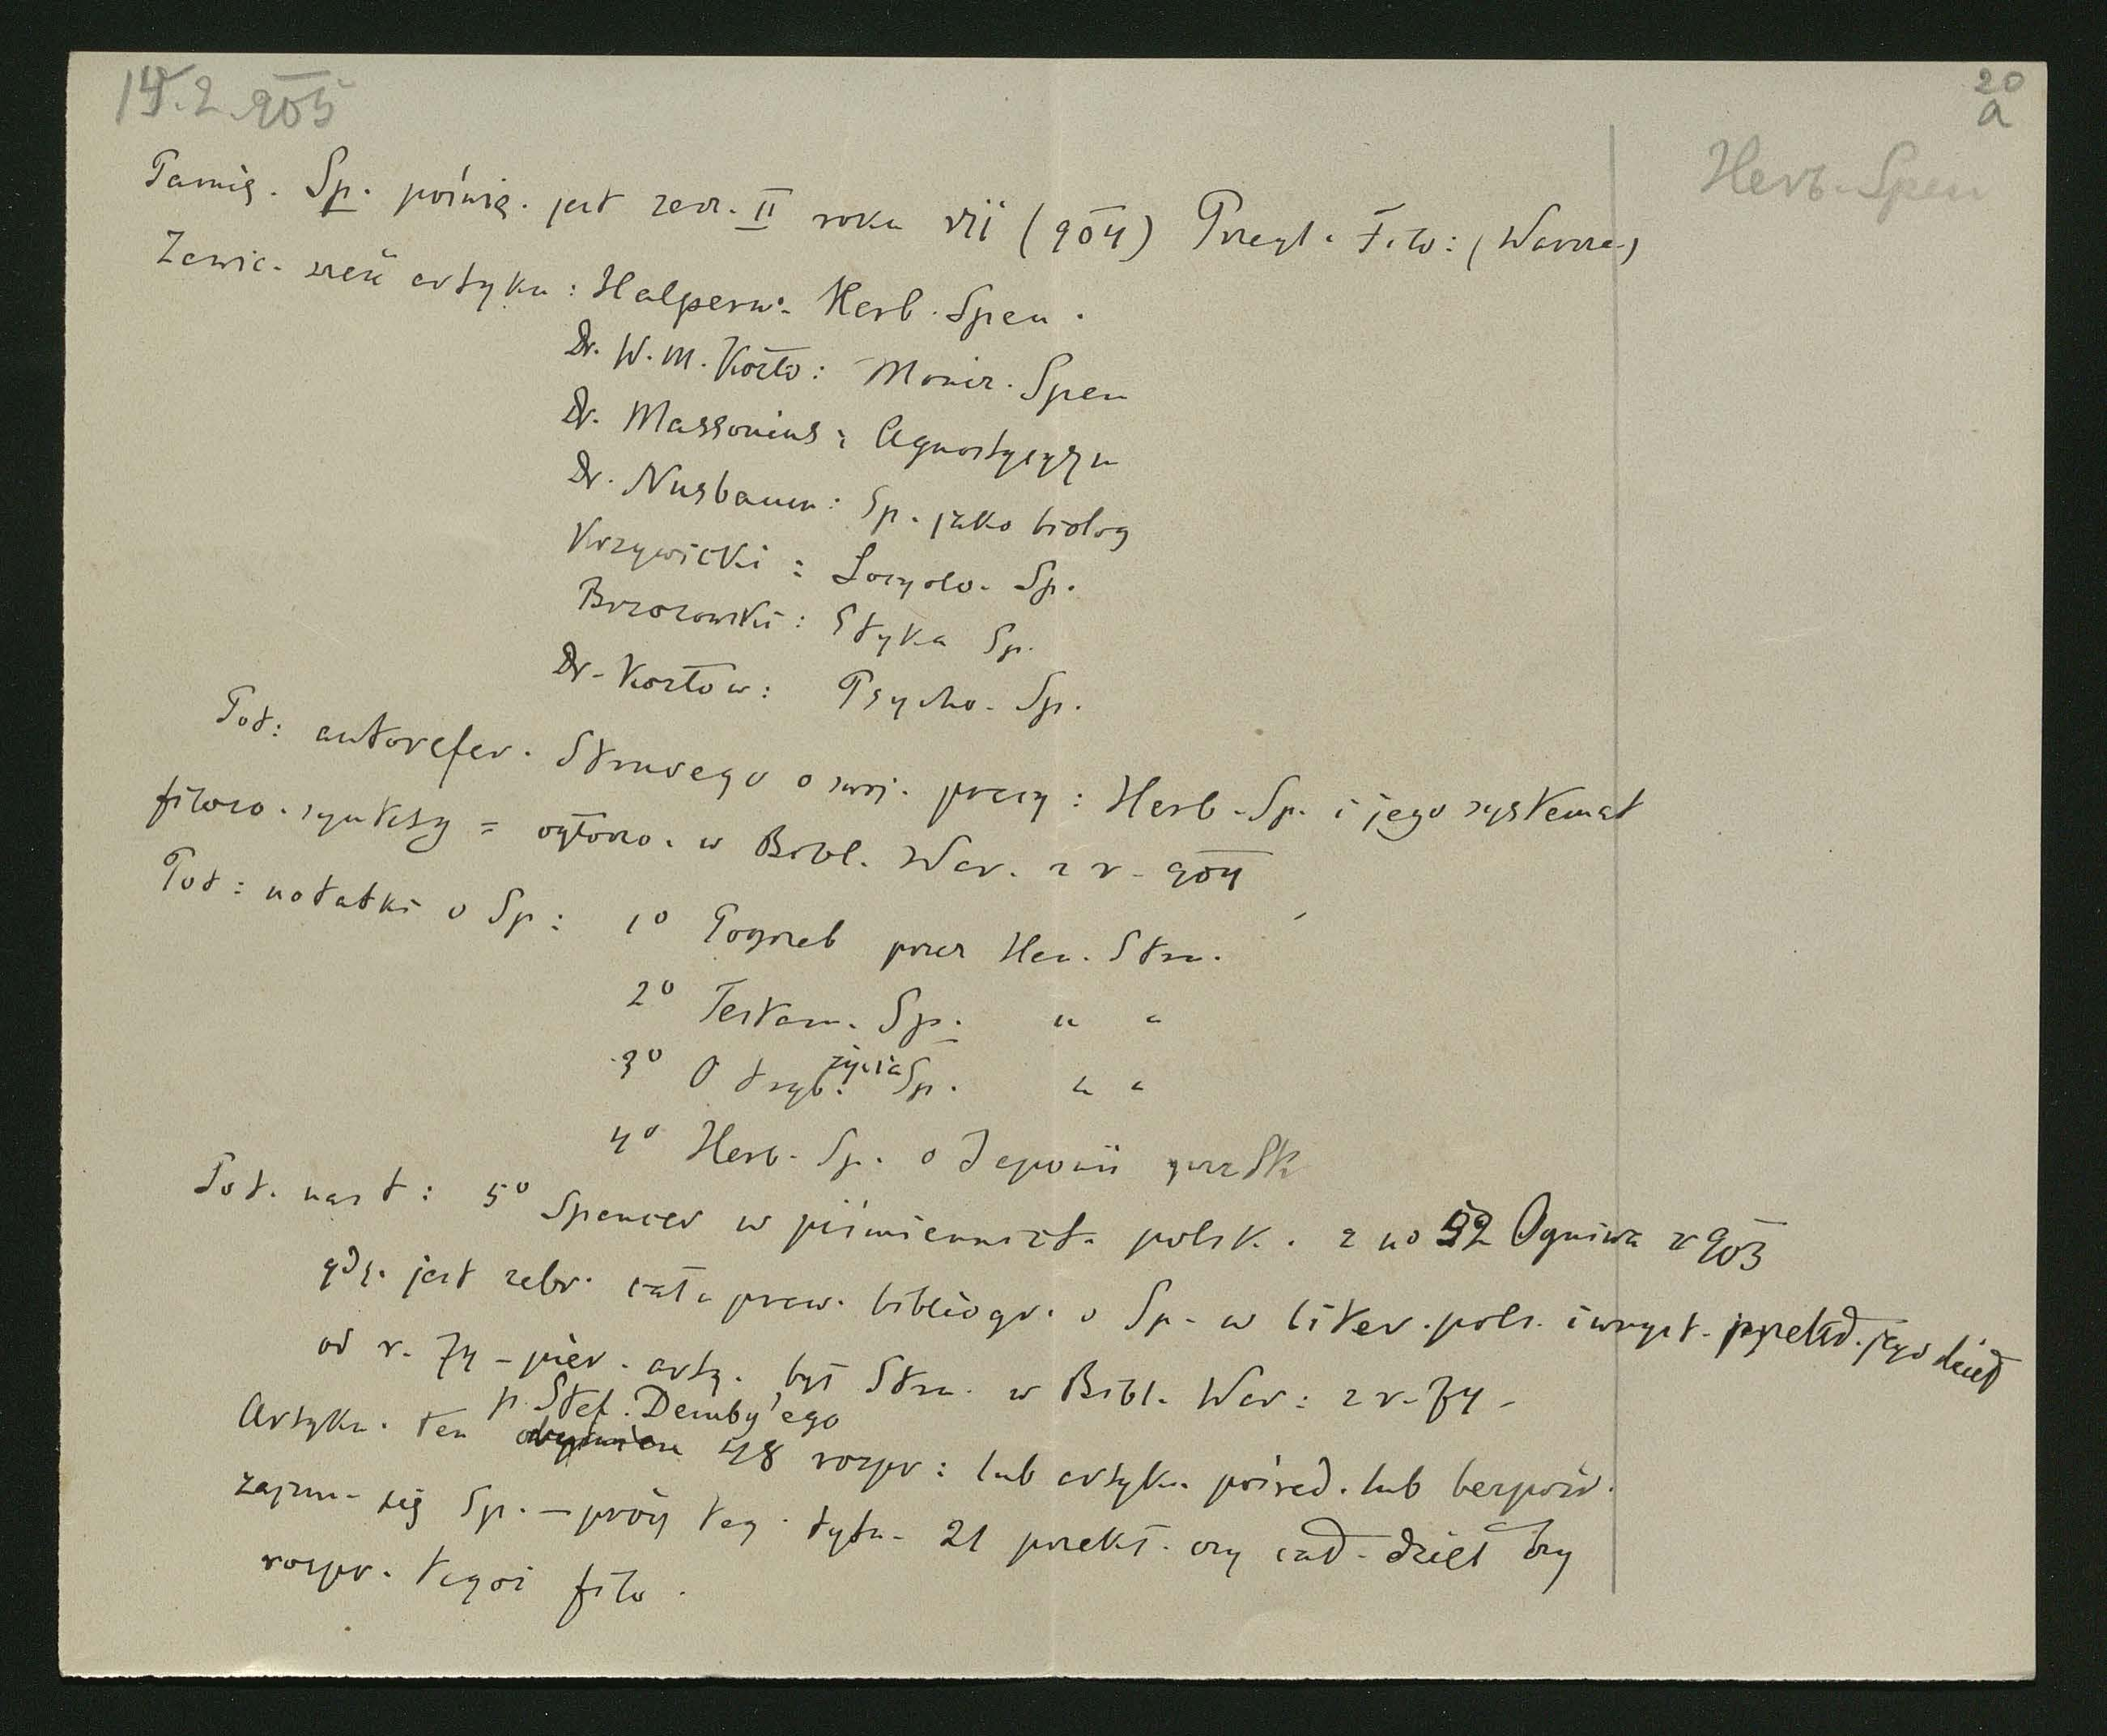 15.2.905
20
a
Herb. Spen
Pamię. Sp. poświę. jest zesz. II roku VII (904) Przegl. Filo: (Warsza.)
Zawie. sześć artyku: Halpern. Herb. Spen.
Dr. W. M. Kozło: Monir. Spen
Dr. Massonius: Agnostycyzm
Dr. Nusbaum: Sp. jako biolog
Krzywicki: Socyolo. Sp.
Brzozowski: Etyka Sp.
Dr. Kozłow: Psycho. Sp.
Pot: autorefer. Struvego o swoj. pracy: Herb. Sp. i jego systemat
filozo. syntezy = ogłosz. w Bibl. War. z r. 904
Pot: notatki o Sp: 1º Pogrzeb przez Hen. Stru.
2º Testam. Sp. " "
3º O tryb. życia Sp. " "
4º Herb. Sp. o Japonii
Pot. nast: 5º Spencer w piśmiennict. polsk. z no 52 Ogniwa z 903
gdz. jest zebr. cała praw. bibliogr. o Sp. w liter. pols. i wszyst. przekł. jego dzieł
od r. 74 - pier. arty. był Stru. w Bibl. War: z r. 74 -
p. Stef. Demby'ego
Artyku. ten 48 rozpr: lub artyku. pośred. lub bezpośr.
zajmu. się Sp. - prócz teg. tytu. 21 przekł. czy cał. dzieł czy
rozpr. tegoż filo.